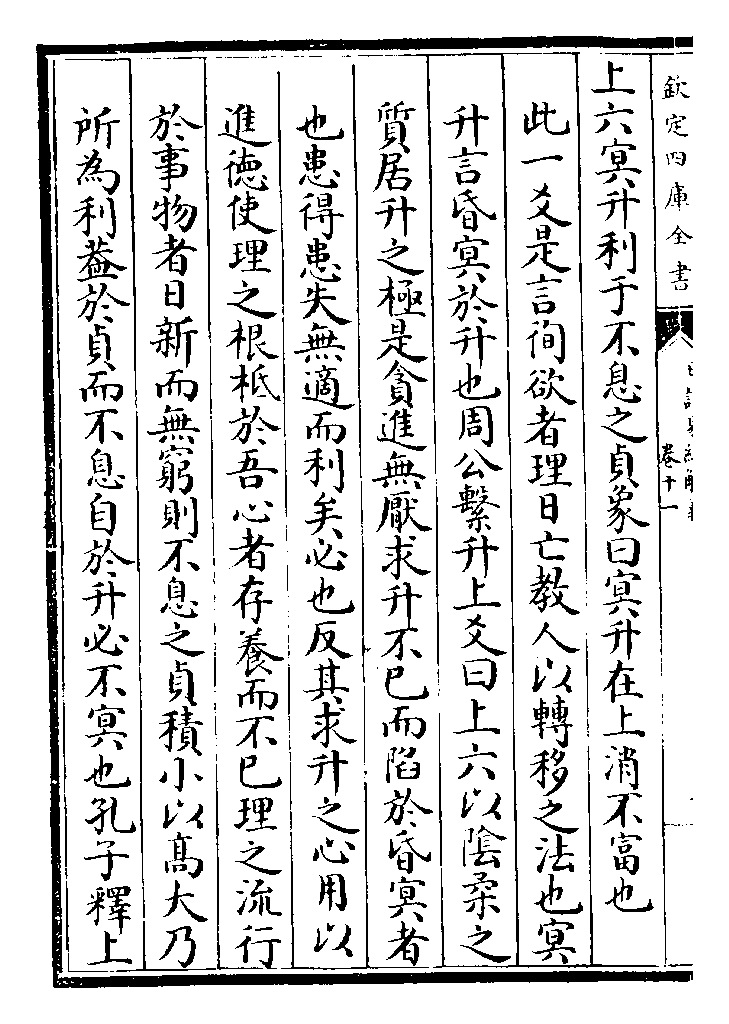 欽定四庫全書
卷十一
上六冥升利于不息之貞象曰冥升在上消不富也
此一爻是言徇欲者理日亡教人以轉移之法也冥
升言昏冥於升也周公繫升上爻曰上六以陰柔之
質居升之極是貪進無厭求升不已而陷於昏冥者
也患得患失無適而利矣必也反其求升之心用以
進徳使理之根柢於吾心者存養而不已理之流行
於事物者日新而無窮則不息之貞積小以髙大乃
所為利葢於貞而不息自於升必不冥也孔子釋上